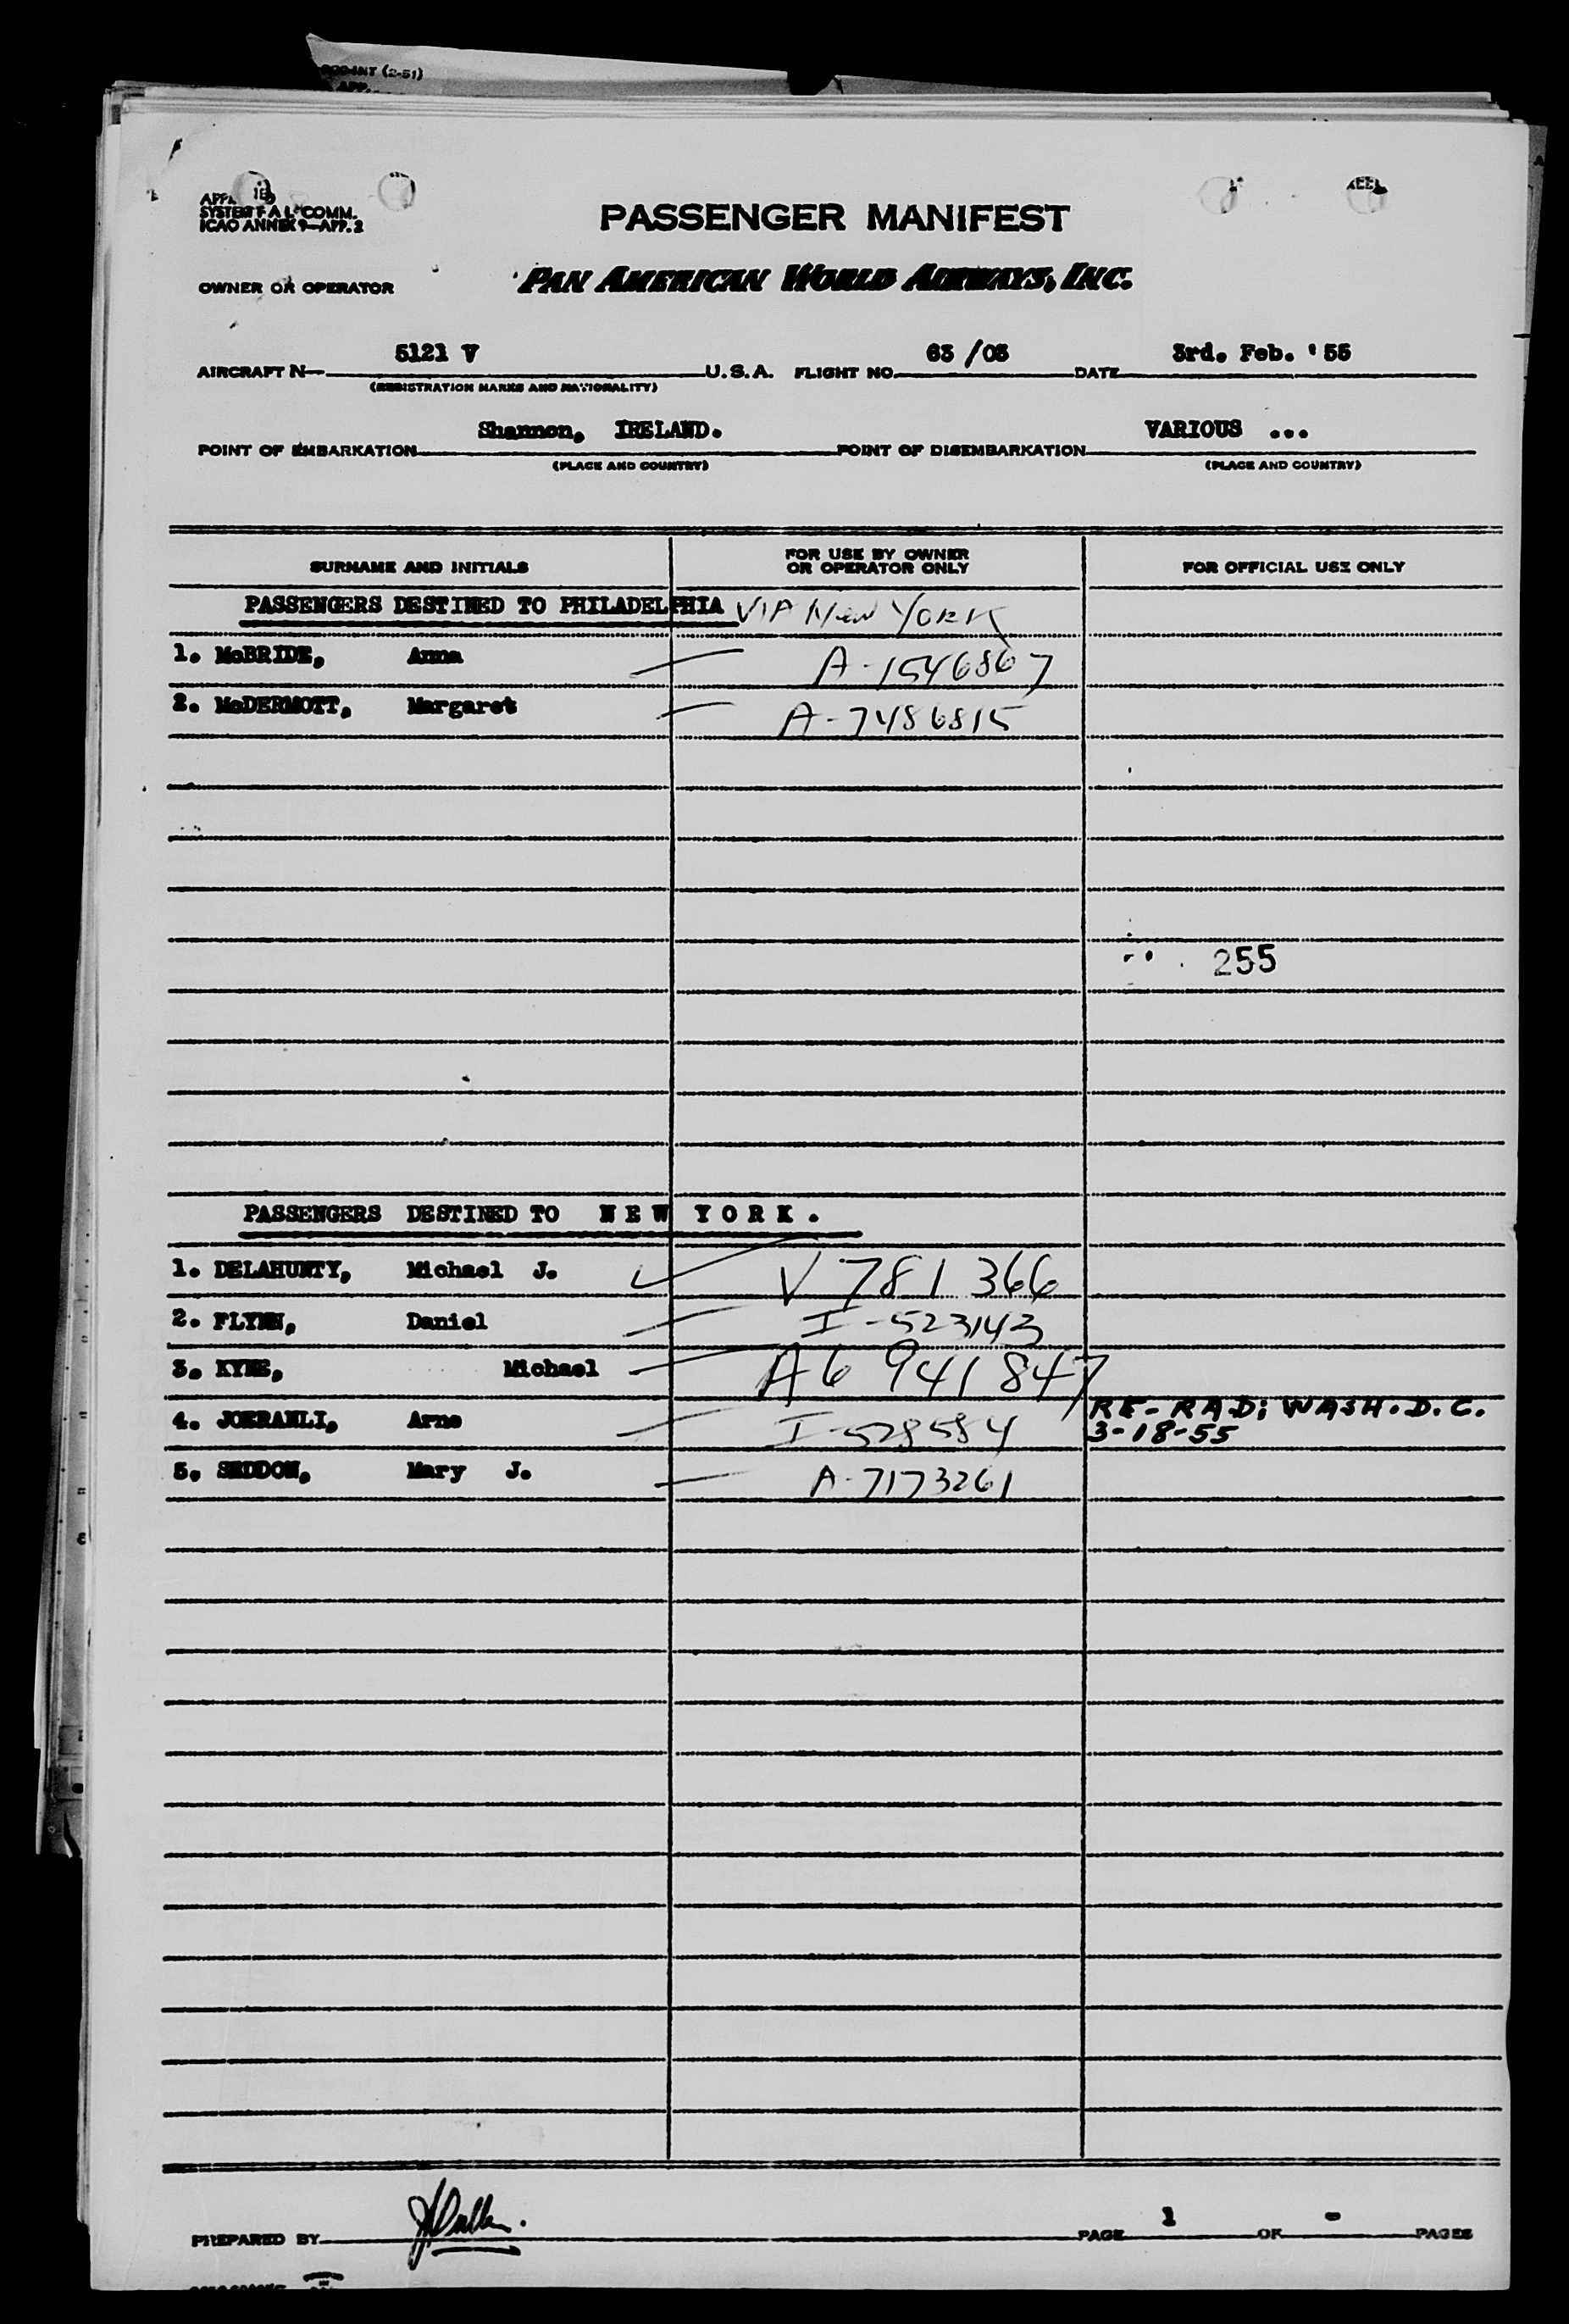 COUNT (2-51)
SYSTEM F A L COMM.
ICAO ANNEX 9—APP. 2
PASSENGER MANIFEST
OWNER OR OPERATOR PAN AMERICAN WORLD AIRWAYS, INC.
AIRCRAFT N— 5121 V U.S.A. FLIGHT NO. 63 /03 DATE 3rd. Feb. '55
(REGISTRATION MARKS AND NATIONALITY)
POINT OF EMBARKATION Shannon, IRELAND. POINT OF DISEMBARKATION VARIOUS ...
(PLACE AND COUNTRY) (PLACE AND COUNTRY)
SURNAME AND INITIALS FOR USE BY OWNER OR OPERATOR ONLY FOR OFFICIAL USE ONLY
PASSENGERS DESTINED TO PHILADELPHIA VIA New YORK
1. McBRIDE, Anna A-1546867
2. McDERMOTT, Margaret A-7486815
255
PASSENGERS DESTINED TO N E W Y O R K .
1. DELAHUNTY, Michael J. V 781 366
2. FLYNN, Daniel I-523143
3. KYNE, Michael A6 941 847
4. JOERANLI, Arne I-528584 RE-RAD: WASH. D.C.
3-18-55
5. SEDDON, Mary J. A-7173261
PREPARED BY PAGE 1 OF - PAGES